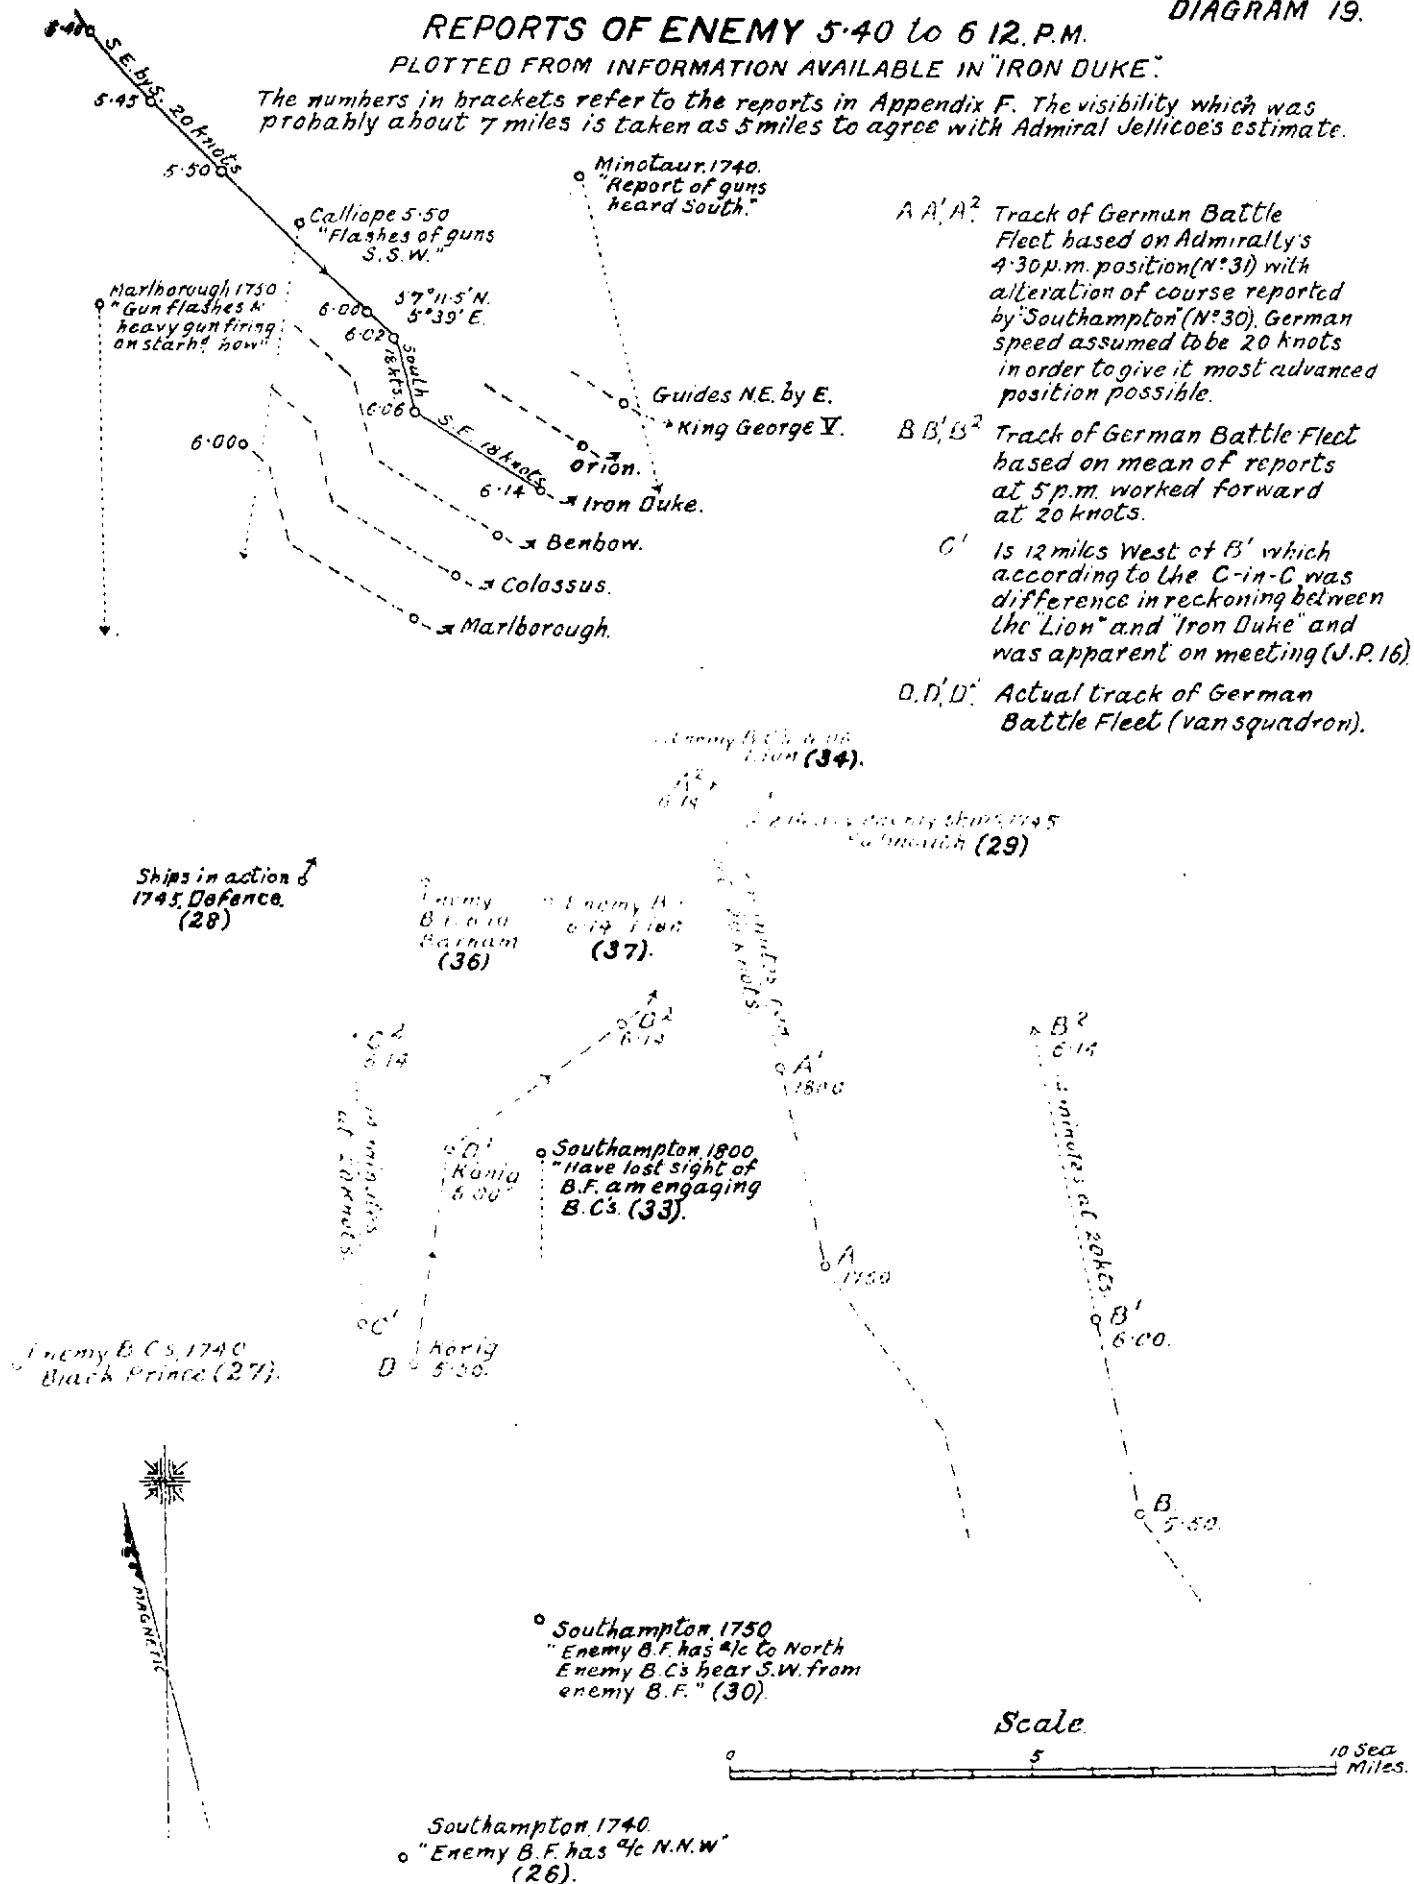 DIAGRAM 19.
REPORTS OF ENEMY 5·40 to 6 12. P.M.
PLOTTED FROM INFORMATION AVAILABLE IN "IRON DUKE".
The numbers in brackets refer to the reports in Appendix F. The visibility which was
probably about 7 miles is taken as 5 miles to agree with Admiral Jellicoe's estimate.
5·40
S.E. by S. 20 knots
5·45
5·50
Minotaur. 1740.
"Report of guns
heard South."
Calliope 5·50
"Flashes of guns
S.S.W."
Marlborough 1750
"Gun flashes &
heavy gun firing
on starbd bow"
6·00
57° 11·5' N.
5° 39' E.
6·02
South
18 kts.
6·06
S.E. 18 knots
6·14
6·00
Guides N.E. by E.
King George V.
Orion.
Iron Duke.
Benbow.
Colossus.
Marlborough.
A A', A² Track of German Battle
Fleet based on Admiralty's
4·30 p.m. position (Nº 31) with
alteration of course reported
by "Southampton" (Nº 30). German
speed assumed to be 20 knots
in order to give it most advanced
position possible.
B B', B² Track of German Battle Fleet
based on mean of reports
at 5 p.m. worked forward
at 20 knots.
C' Is 12 miles West of B' which
according to the C-in-C, was
difference in reckoning between
the "Lion" and "Iron Duke" and
was apparent on meeting (J.P. 16)
D. D', D² Actual track of German
Battle Fleet (van squadron).
Enemy B.C's
Lion (34).
A²
6·14
Enemy Ships, 1745
Falmouth (29)
Ships in action
1745. Defence.
(28)
Enemy
B.F. 6·10
Barham
(36)
Enemy B.F.
6·14 Lion
(37).
C²
6·14
14 minutes
at 20 knots.
D²
6·14
A'
1800
B²
6·14
minutes at 20 kts.
D'
König
6·00
Southampton, 1800
"Have lost sight of
B.F. am engaging
B.C's. (33).
A
1750
C'
D König
5·50.
B'
6·00.
Enemy B.C's, 1740
Black Prince (27).
B
5·50.
MAGNETIC
Southampton, 1750
"Enemy B.F. has a/c to North
Enemy B.C's bear S.W. from
enemy B.F." (30)
Scale
0 5 10 Sea
Miles.
Southampton, 1740.
"Enemy B.F. has a/c N.N.W"
(26).